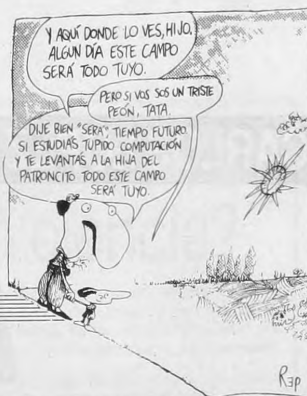 Y AQUÍ DONDE LO VES, HIJO,
ALGUN DÍA ESTE CAMPO
SERÁ TODO TUYO.
PERO SI VOS SOS UN TRISTE
PEÓN, TATA.
DIJE BIEN "SERÁ", TIEMPO FUTURO.
SI ESTUDIÁS TUPIDO COMPUTACIÓN
Y TE LEVANTÁS A LA HIJA DEL
PATRONCITO TODO ESTE CAMPO
SERÁ TUYO.
REP